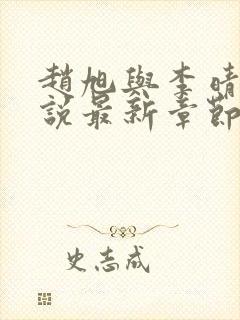 趙旭與李晴
說最新章節
史志成